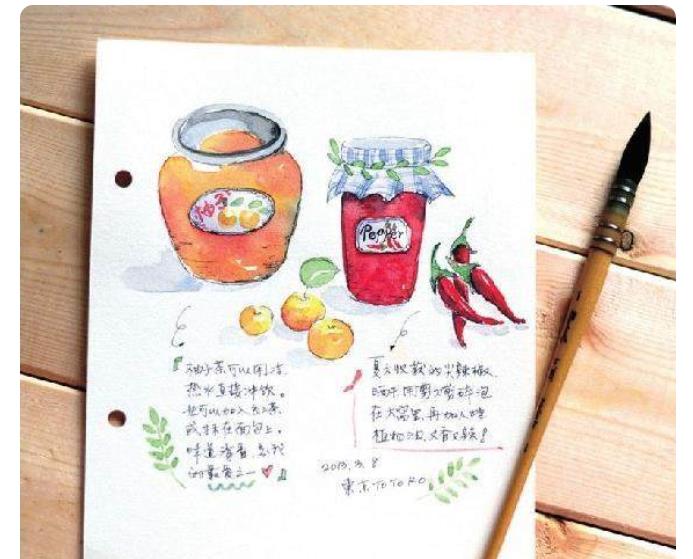 柚子
Pepper
柚子茶可以用冷
热水直接冲饮。
也可以加入红茶
或抹在面包上。
味道清香,是我
的最爱之一
夏天收获的尖辣椒
晒干用剪刀剪碎泡
在大酱里,再加入
植物油,又香又辣!
2013. 3. 8
東京TOTORO